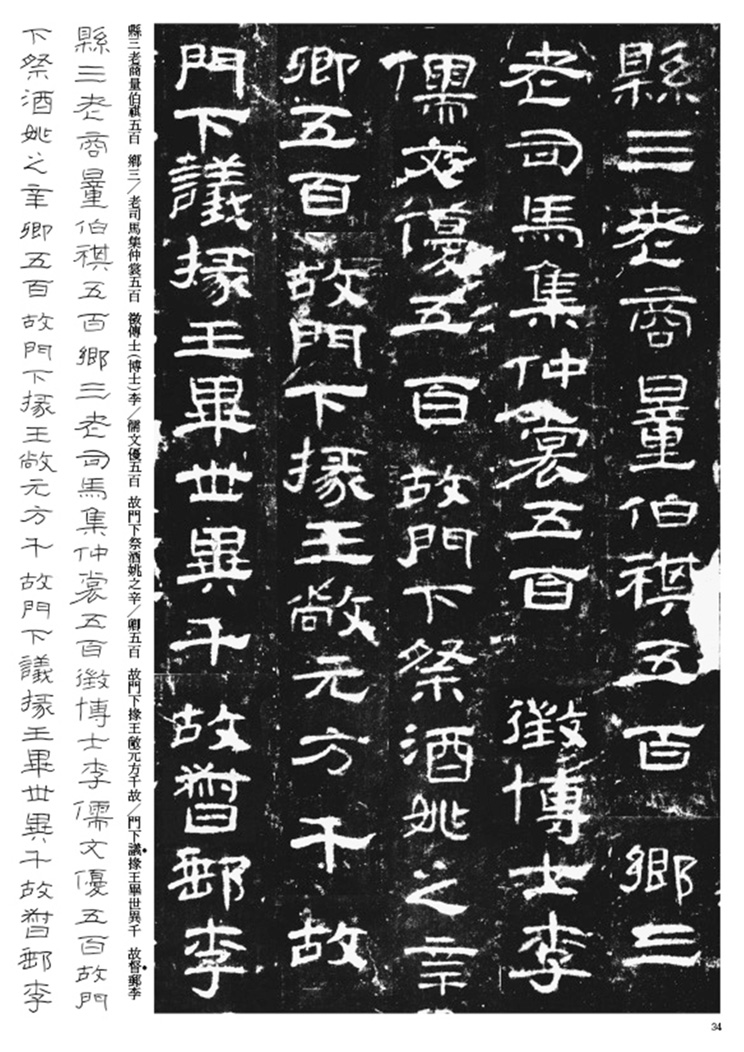 縣三老商量伯祺五百　鄉三
老司馬集仲裳五百　徵博士李
儒文優五百　故門下祭酒姚之辛
卿五百　故門下掾王敞元方千　故
門下議掾王畢世異千　故督郵李
縣三老商量伯祺五百　鄉三／老司馬集仲裳五百　徵傳士（博士）李／儒文優五百　故門下祭酒姚之辛／卿五百　故門下掾王敞元方千故／門下議掾王畢世異千　故督郵李
縣三老商量伯祺五百鄉三老司馬集仲裳五百徵博士李儒文優五百故門
下祭酒姚之辛卿五百故門下掾王敞元方千故門下議掾王畢世異千故督郵李
34